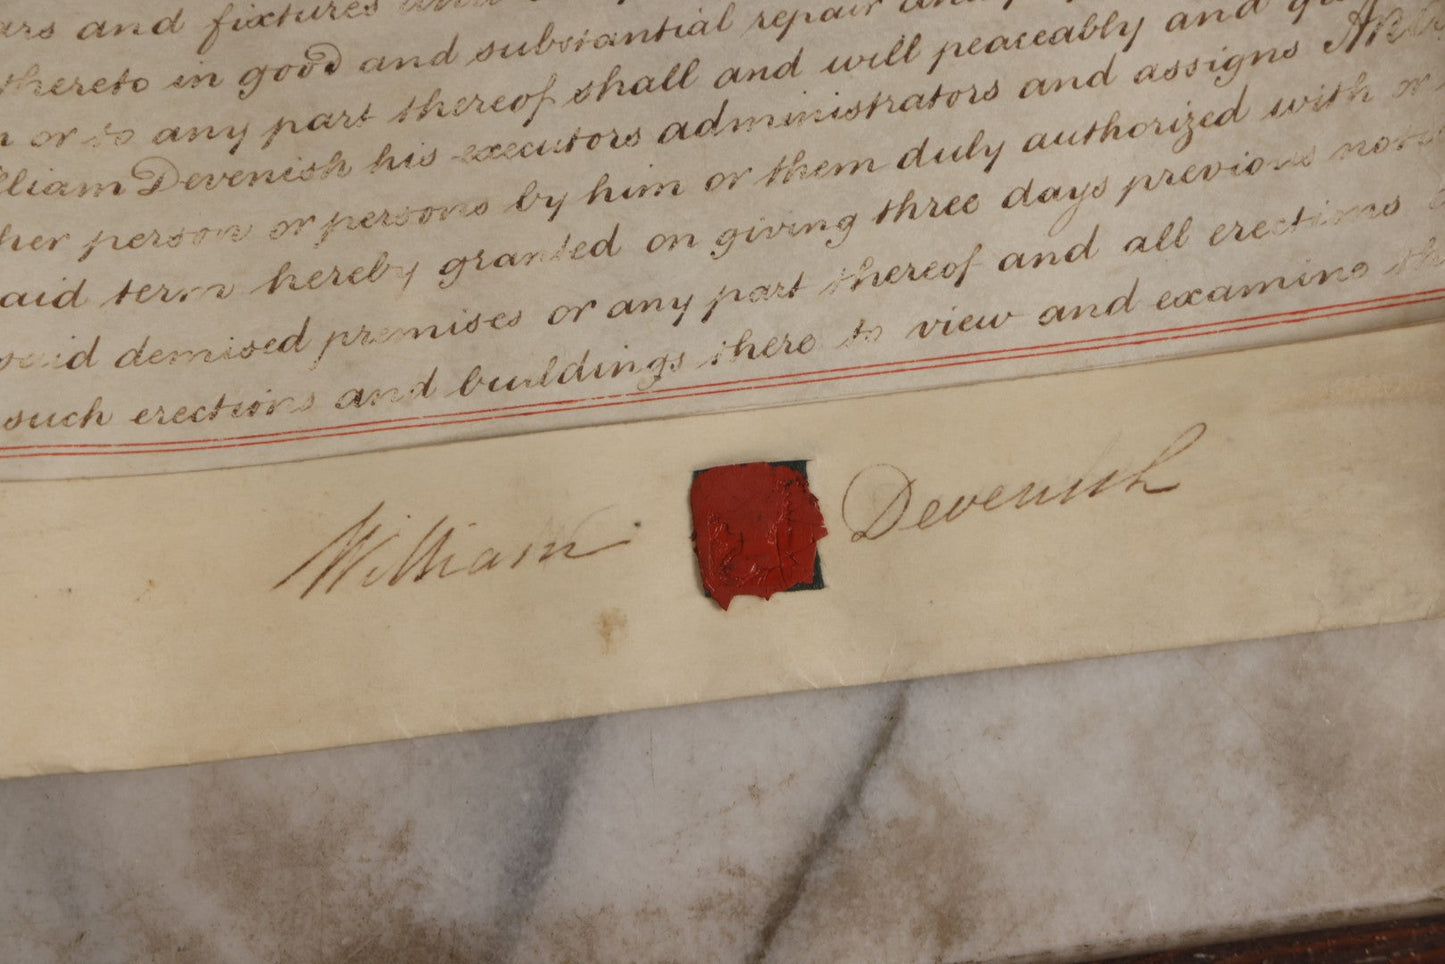 and fixtures
thereto in good and substantial repair
or to any part thereof shall and will peaceably and
William Devenish his executors administrators and assigns
person or persons by him or them duly authorized with or
said term hereby granted on giving three days previous
said demised premises or any part thereof and all erections
such erections and buildings there to view and examine
William Devenish